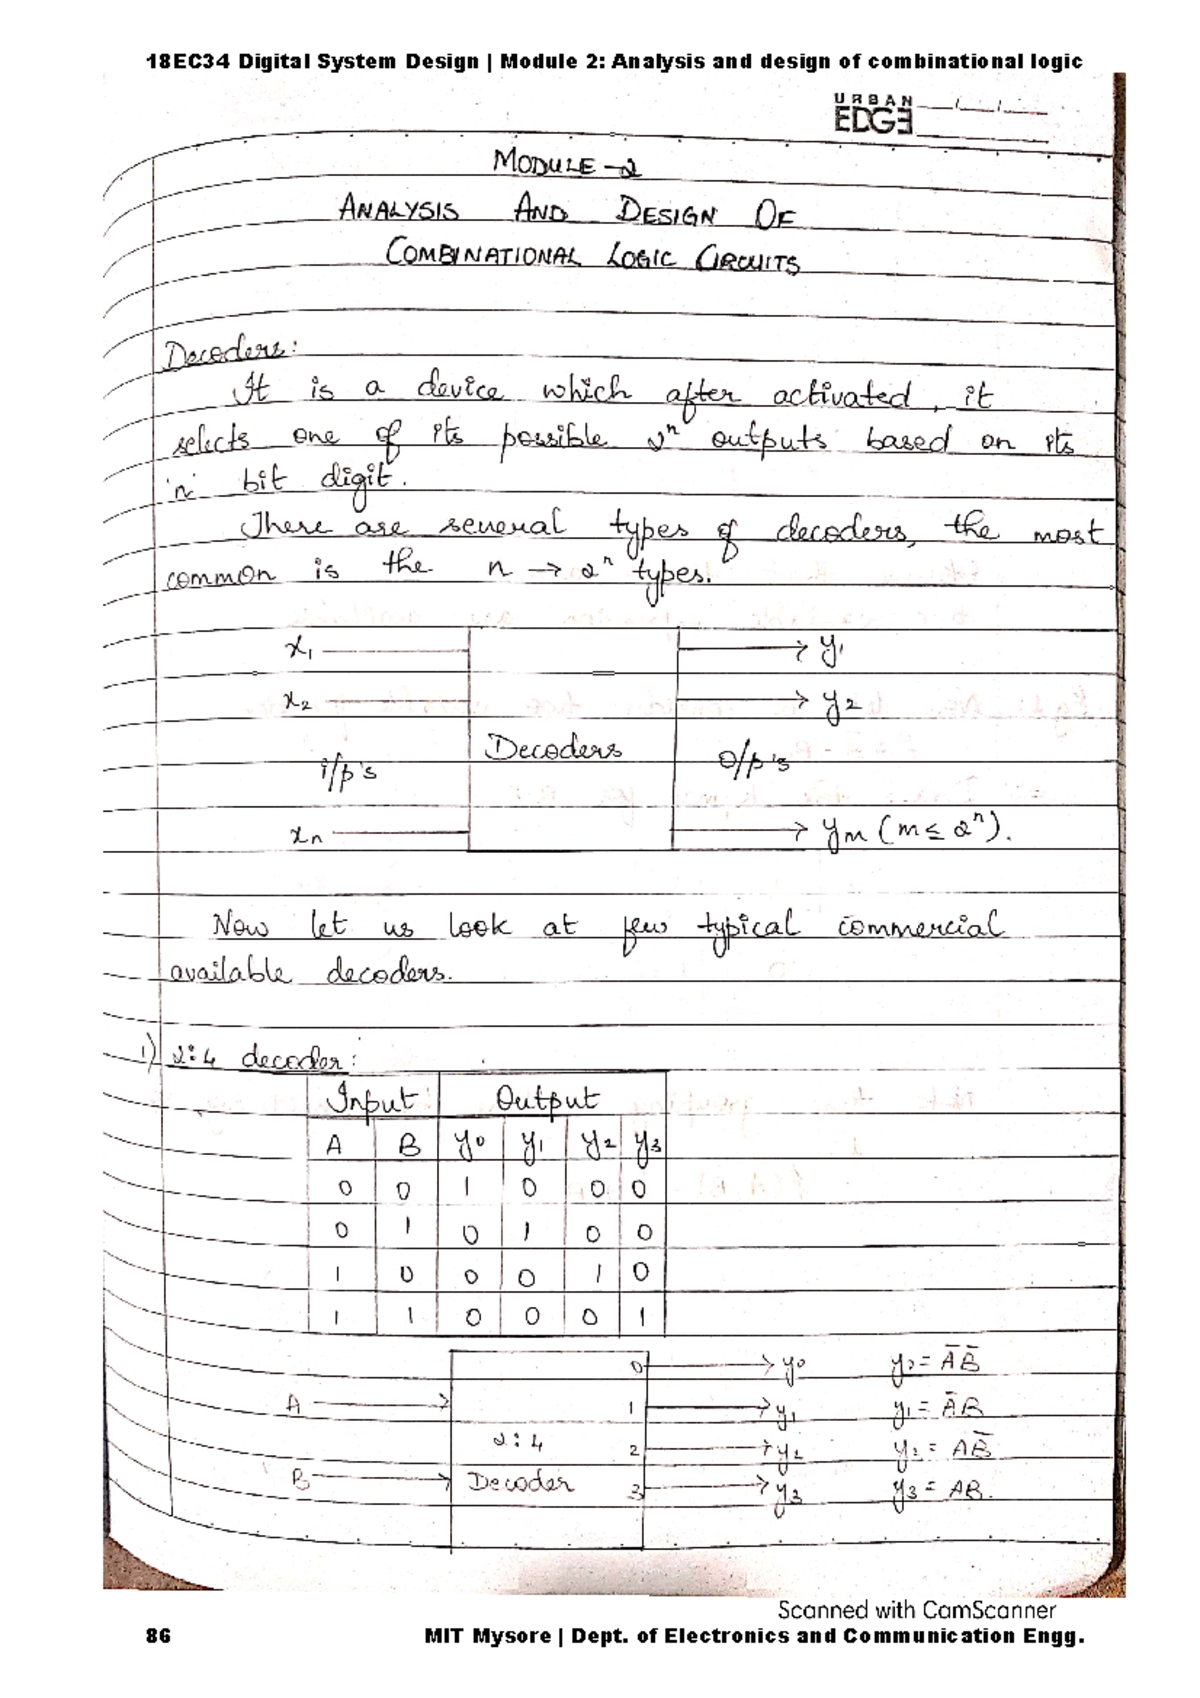 18EC34 Digital System Design | Module 2: Analysis and design of combinational logic
URBAN
EDGE
MODULE-2
ANALYSIS AND DESIGN OF
COMBINATIONAL LOGIC CIRCUITS
Decoders:
It is a device which after activated, it
selects one of its possible 2ⁿ outputs based on its
'n' bit digit.
There are several types of decoders, the most
common is the n → 2ⁿ types.
x₁ y₁
x₂ y₂
Decoders
i/p's o/p's
xₙ yₘ (m ≤ 2ⁿ).
Now let us look at few typical commercial
available decoders.
1) 2:4 decoder:
Input Output
A B y₀ y₁ y₂ y₃
0 0 1 0 0 0
0 1 0 1 0 0
1 0 0 0 1 0
1 1 0 0 0 1
0 y₀ y₀ = A̅ B̅
A 1 y₁ y₁ = A̅ B
2:4 2 y₂ y₂ = A B̅
B Decoder 3 y₃ y₃ = AB.
Scanned with CamScanner
86 MIT Mysore | Dept. of Electronics and Communication Engg.